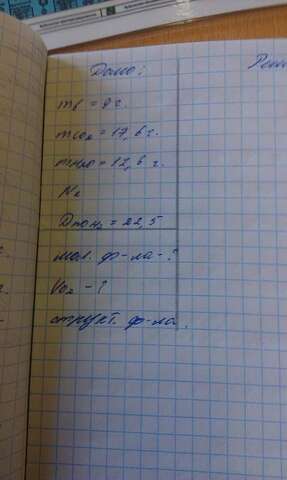 Дано:
Реш
mв = 9 г.
mCO₂ = 17,6 г.
mH₂O = 12,6 г.
N₂
Dпо H₂ = 22,5
мол. ф-ла - ?
VO₂ - ?
структ. ф-ла.